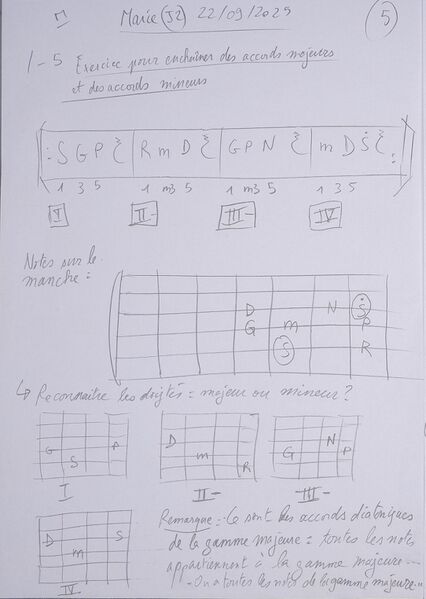 Marie (J2) 22/09/2025
5
1-5 Exercice pour enchaîner des accords majeurs
et des accords mineurs
S G P R m D G P N m D Ṡ
1 3 5 1 m3 5 1 m3 5 1 3 5
I II- III- IV
Notes sur le
manche =
D N Ṡ
G m P
S R
↳ Reconnaître les doigtés = majeur ou mineur ?
G P D N
S m G P
R
I II- III-
D S
m
IV
Remarque : Ce sont les accords diatoniques
de la gamme majeure = toutes les notes
appartiennent à la gamme majeure...
- On a toutes les notes de la gamme majeure...